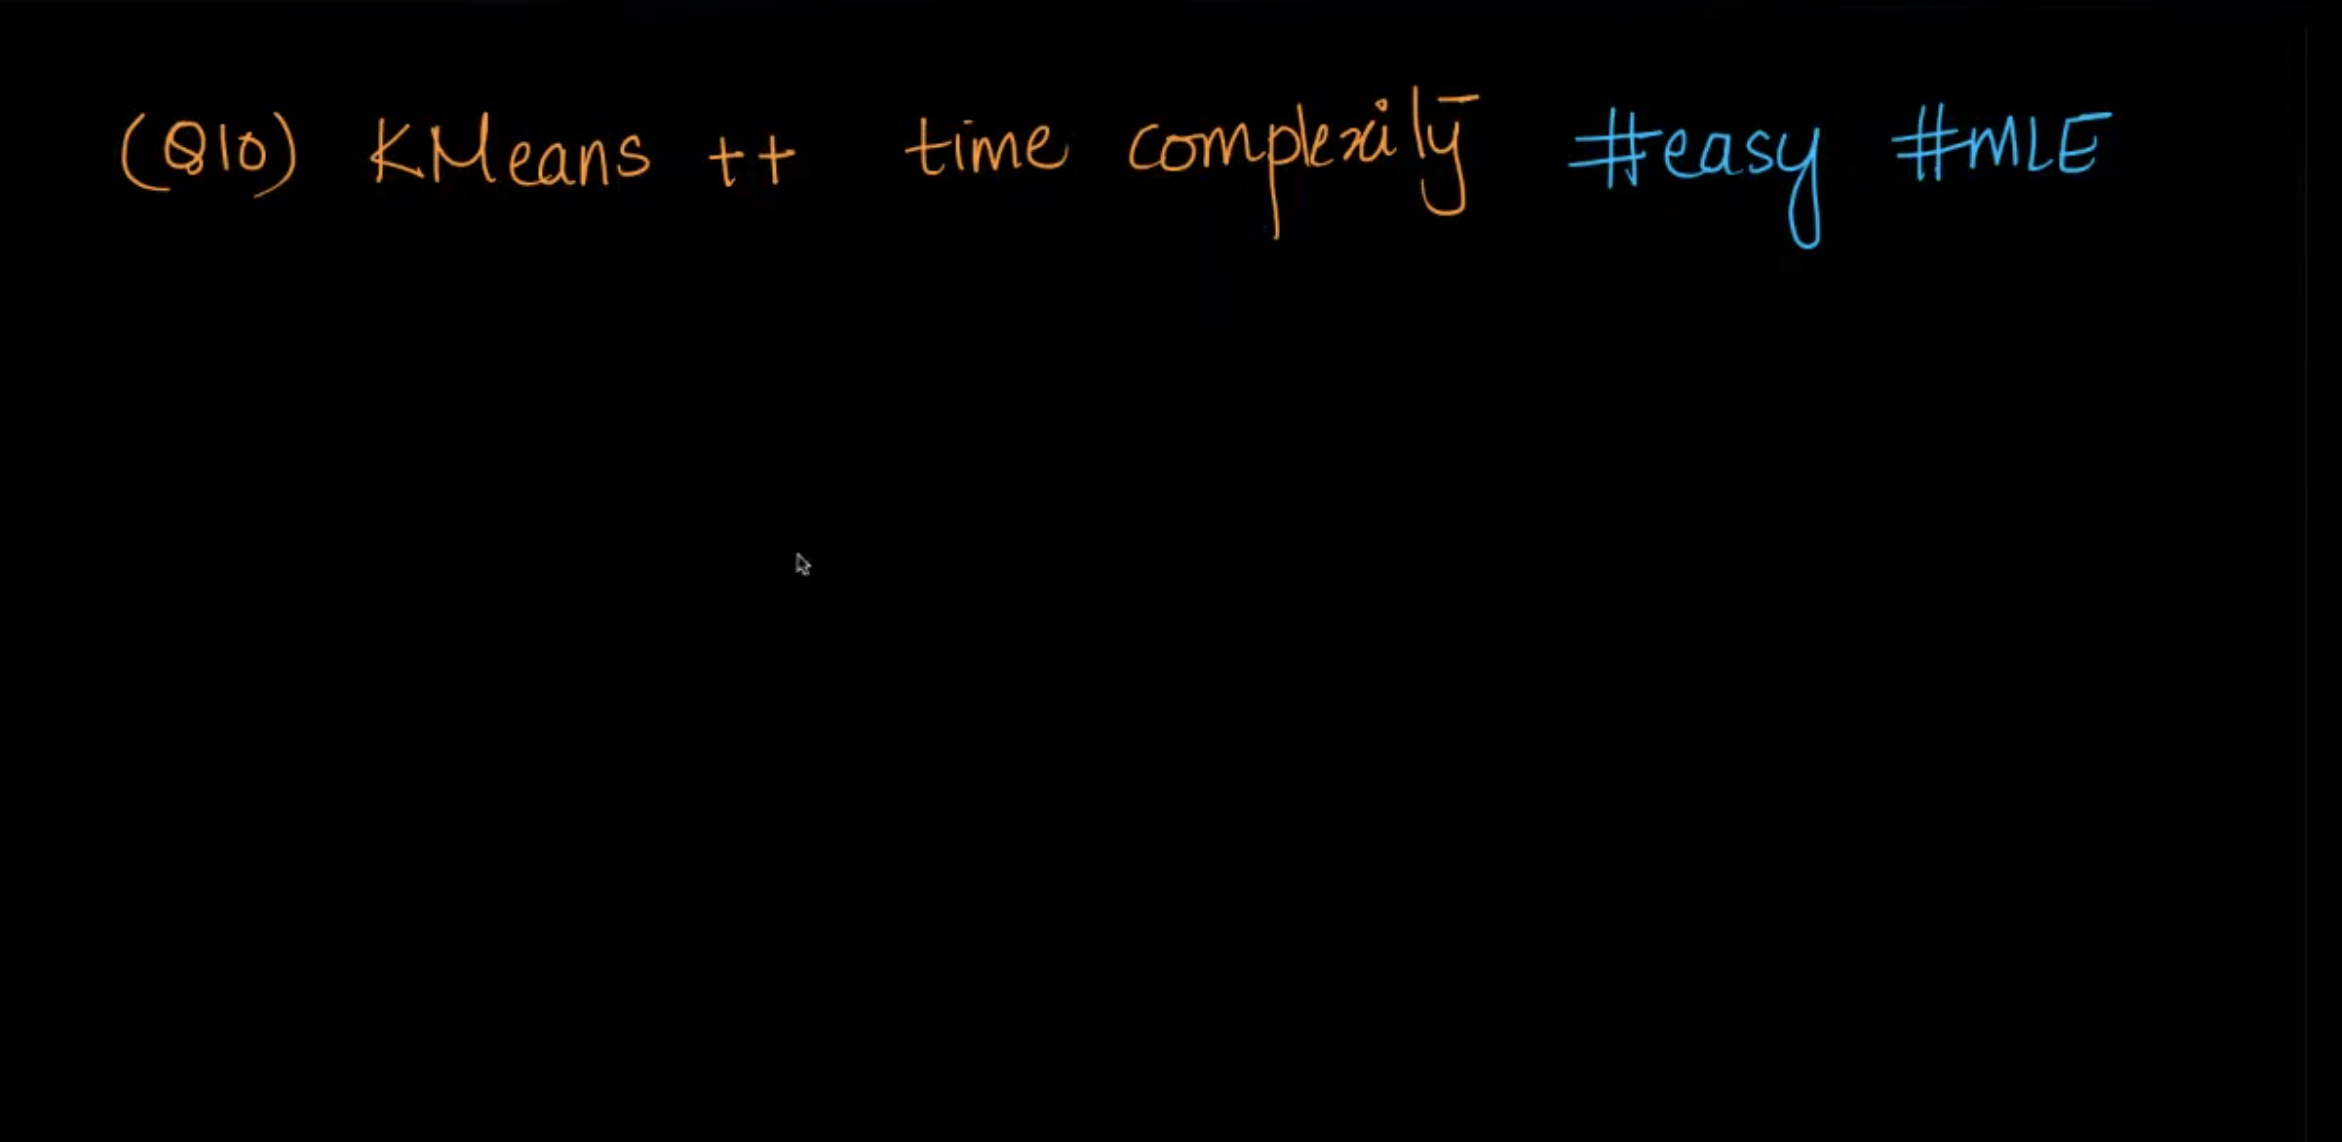 (Q10) KMeans ++ time complexity #easy #MLE